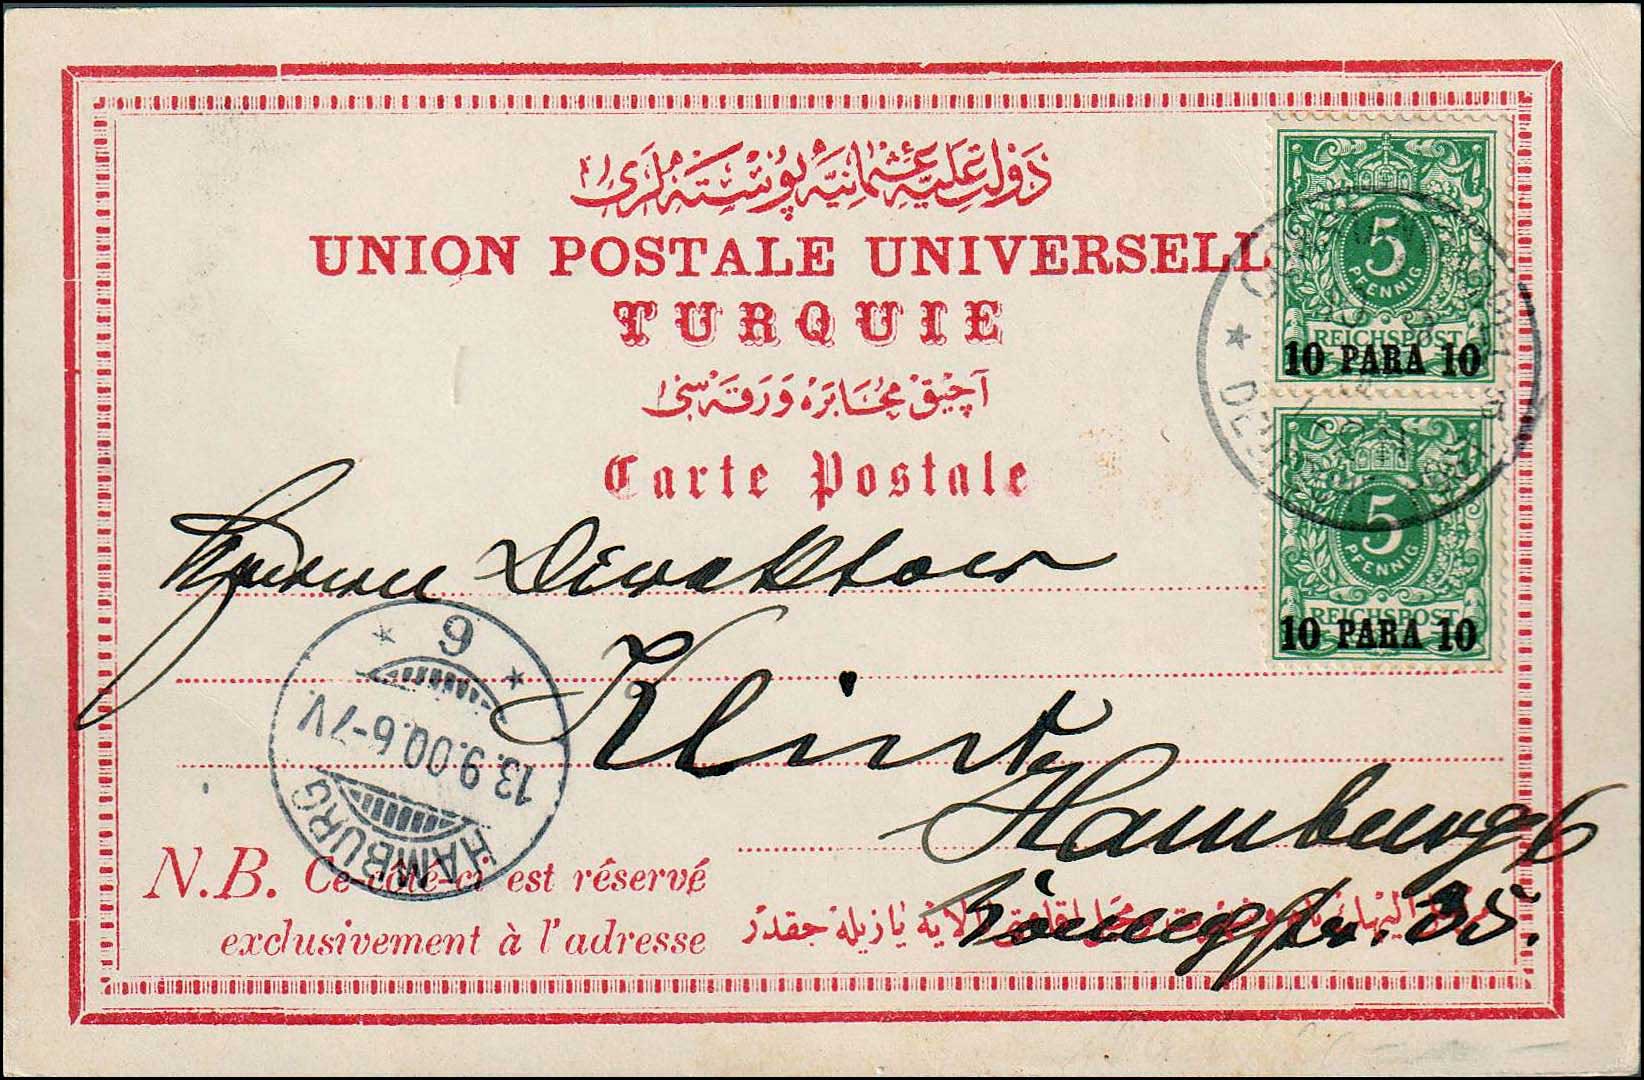 دولت علیهٔ عثمانیه پوسته لری
UNION POSTALE UNIVERSELL
TURQUIE
آچیق مخابره ورقه سی
Carte Postale
5
PFENNIG
REICHSPOST
10 PARA 10
5
PFENNIG
REICHSPOST
10 PARA 10
Herrn Direktor
Klint
Hamburg
35.
HAMBURG
13.9.00.6-7V.
* 9 *
N.B. Ce côté-ci est réservé
exclusivement à l'adresse
یازیله جقدر